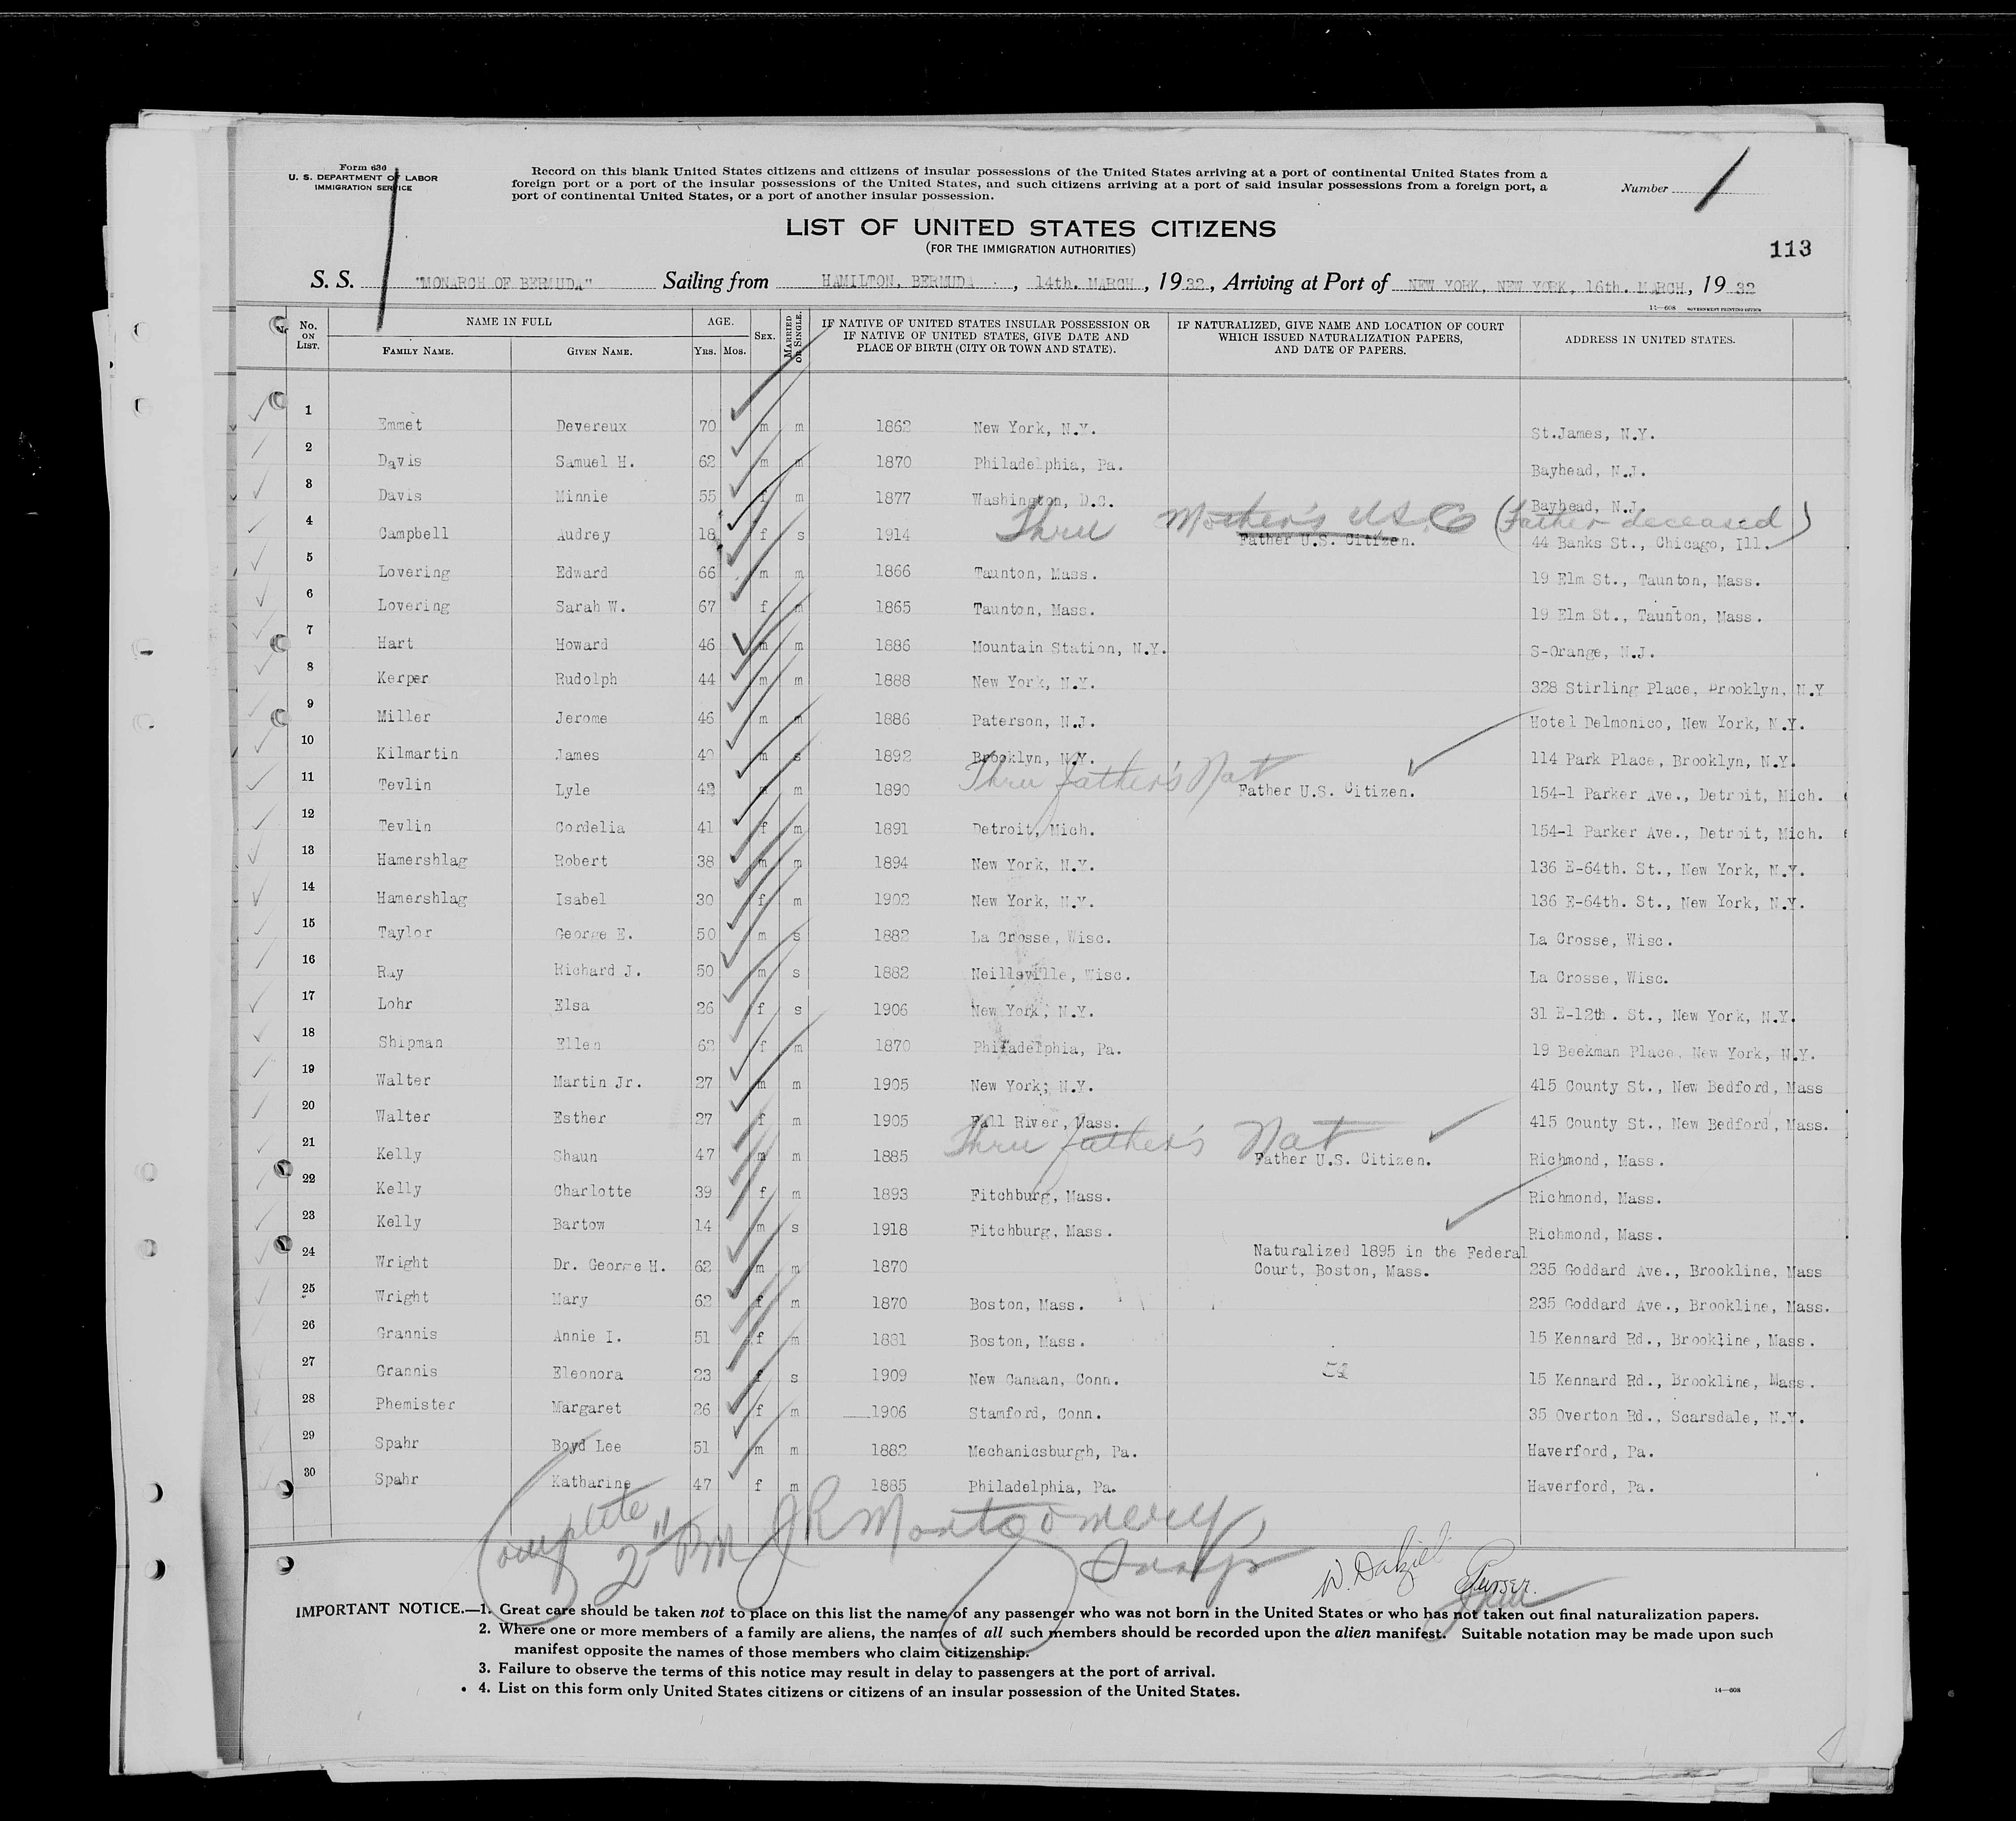 Form 630
U. S. DEPARTMENT OF LABOR
IMMIGRATION SERVICE
Record on this blank United States citizens and citizens of insular possessions of the United States arriving at a port of continental United States from a
foreign port or a port of the insular possessions of the United States, and such citizens arriving at a port of said insular possessions from a foreign port, a
port of continental United States, or a port of another insular possession.
Number 1
LIST OF UNITED STATES CITIZENS
(FOR THE IMMIGRATION AUTHORITIES)
113
S. S. "MONARCH OF BERMUDA" Sailing from HAMILTON, BERMUDA, 14th. MARCH, 1932, Arriving at Port of NEW YORK, NEW YORK, 16th. MARCH, 1932
14—608 GOVERNMENT PRINTING OFFICE
No. ON LIST. NAME IN FULL FAMILY NAME. GIVEN NAME. AGE. YRS. MOS. SEX. MARRIED OR SINGLE. IF NATIVE OF UNITED STATES INSULAR POSSESSION OR IF NATIVE OF UNITED STATES, GIVE DATE AND PLACE OF BIRTH (CITY OR TOWN AND STATE). IF NATURALIZED, GIVE NAME AND LOCATION OF COURT WHICH ISSUED NATURALIZATION PAPERS, AND DATE OF PAPERS. ADDRESS IN UNITED STATES.
1 Emmet Devereux 70 m m 1862 New York, N.Y. St.James, N.Y.
2 Davis Samuel H. 62 m m 1870 Philadelphia, Pa. Bayhead, N.J.
3 Davis Minnie 55 f m 1877 Washington, D.C. Bayhead, N.J.
Thru Mother's U.S.C (Father deceased)
4 Campbell Audrey 18 f s 1914 Father U.S. Citizen. 44 Banks St., Chicago, Ill.
5 Lovering Edward 66 m m 1866 Taunton, Mass. 19 Elm St., Taunton, Mass.
6 Lovering Sarah W. 67 f m 1865 Taunton, Mass. 19 Elm St., Taunton, Mass.
7 Hart Howard 46 m m 1886 Mountain Station, N.Y. S-Orange, N.J.
8 Kerper Rudolph 44 m m 1888 New York, N.Y. 328 Stirling Place, Brooklyn, N.Y
9 Miller Jerome 46 m m 1886 Paterson, N.J. Hotel Delmonico, New York, N.Y.
10 Kilmartin James 40 m s 1892 Brooklyn, N.Y. 114 Park Place, Brooklyn, N.Y.
Thru father's Nat
11 Tevlin Lyle 42 m m 1890 Father U.S. Citizen. 154-1 Parker Ave., Detroit, Mich.
12 Tevlin Cordelia 41 f m 1891 Detroit, Mich. 154-1 Parker Ave., Detroit, Mich.
13 Hamershlag Robert 38 m m 1894 New York, N.Y. 136 E-64th. St., New York, N.Y.
14 Hamershlag Isabel 30 f m 1902 New York, N.Y. 136 E-64th. St., New York, N.Y.
15 Taylor George E. 50 m s 1882 La Crosse, Wisc. La Crosse, Wisc.
16 Ray Richard J. 50 m s 1882 Neillsville, Wisc. La Crosse, Wisc.
17 Lohr Elsa 26 f s 1906 New York, N.Y. 31 E-12th. St., New York, N.Y.
18 Shipman Ellen 62 f m 1870 Philadelphia, Pa. 19 Beekman Place, New York, N.Y.
19 Walter Martin Jr. 27 m m 1905 New York, N.Y. 415 County St., New Bedford, Mass
20 Walter Esther 27 f m 1905 Fall River, Mass. 415 County St., New Bedford, Mass.
Thru father's Nat
21 Kelly Shaun 47 m m 1885 Father U.S. Citizen. Richmond, Mass.
22 Kelly Charlotte 39 f m 1893 Fitchburg, Mass. Richmond, Mass.
23 Kelly Bartow 14 m s 1918 Fitchburg, Mass. Richmond, Mass.
24 Wright Dr. George H. 62 m m 1870 Naturalized 1895 in the Federal Court, Boston, Mass. 235 Goddard Ave., Brookline, Mass
25 Wright Mary 62 f m 1870 Boston, Mass. 235 Goddard Ave., Brookline, Mass.
26 Grannis Annie I. 51 f m 1881 Boston, Mass. 15 Kennard Rd., Brookline, Mass.
27 Grannis Eleonora 23 f s 1909 New Canaan, Conn. 15 Kennard Rd., Brookline, Mass.
28 Phemister Margaret 26 f m 1906 Stamford, Conn. 35 Overton Rd., Scarsdale, N.Y.
29 Spahr Boyd Lee 51 m m 1882 Mechanicsburgh, Pa. Haverford, Pa.
30 Spahr Katharine 47 f m 1885 Philadelphia, Pa. Haverford, Pa.
Complete 2" PM J R Montgomery,
Insp
W. Dalziel Purser.
IMPORTANT NOTICE.—1. Great care should be taken not to place on this list the name of any passenger who was not born in the United States or who has not taken out final naturalization papers.
2. Where one or more members of a family are aliens, the names of all such members should be recorded upon the alien manifest. Suitable notation may be made upon such
manifest opposite the names of those members who claim citizenship.
3. Failure to observe the terms of this notice may result in delay to passengers at the port of arrival.
4. List on this form only United States citizens or citizens of an insular possession of the United States.
14—608